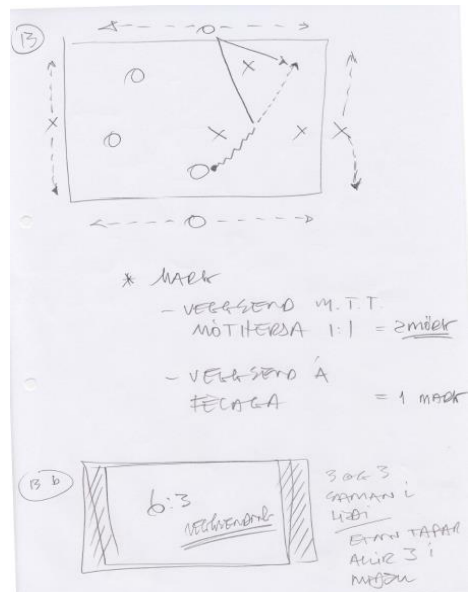 13
* MARK
- VEGGSEND M.T.T.
MÓTHERJA 1:1 = 2 MÖRK
- VEGGSEND Á
FÉLAGA = 1 MARK
13 b
6:3
VEGGSENDING
3 OG 3
SAMAN Í
LIÐI
EINN TAPAR
ALLIR 3 Í
MIÐJU